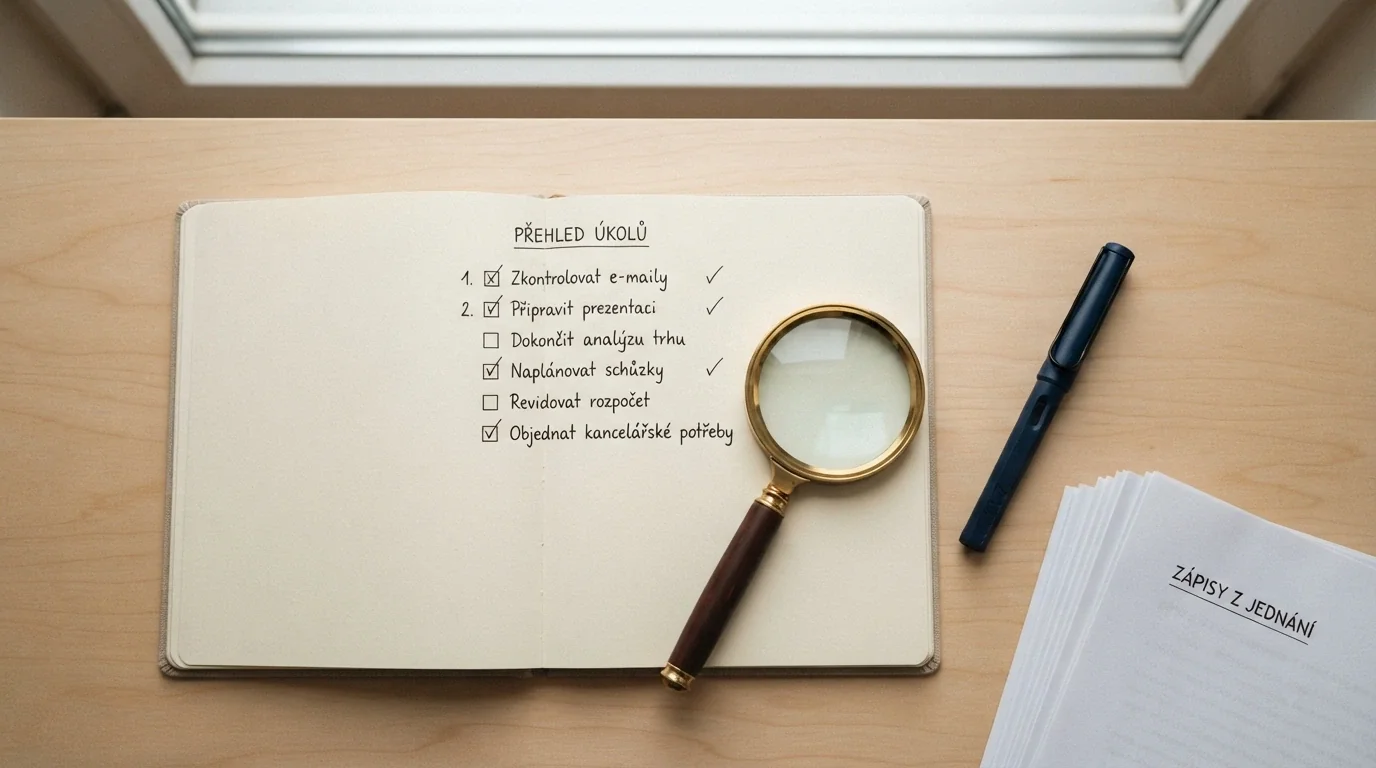 PŘEHLED ÚKOLŮ
1. ☒ Zkontrolovat e-maily ✓
2. ☑ Připravit prezentaci ✓
☐ Dokončit analýzu trhu
☑ Naplánovat schůzky ✓
☐ Revidovat rozpočet
☑ Objednat kancelářské potřeby
ZÁPISY Z JEDNÁNÍ